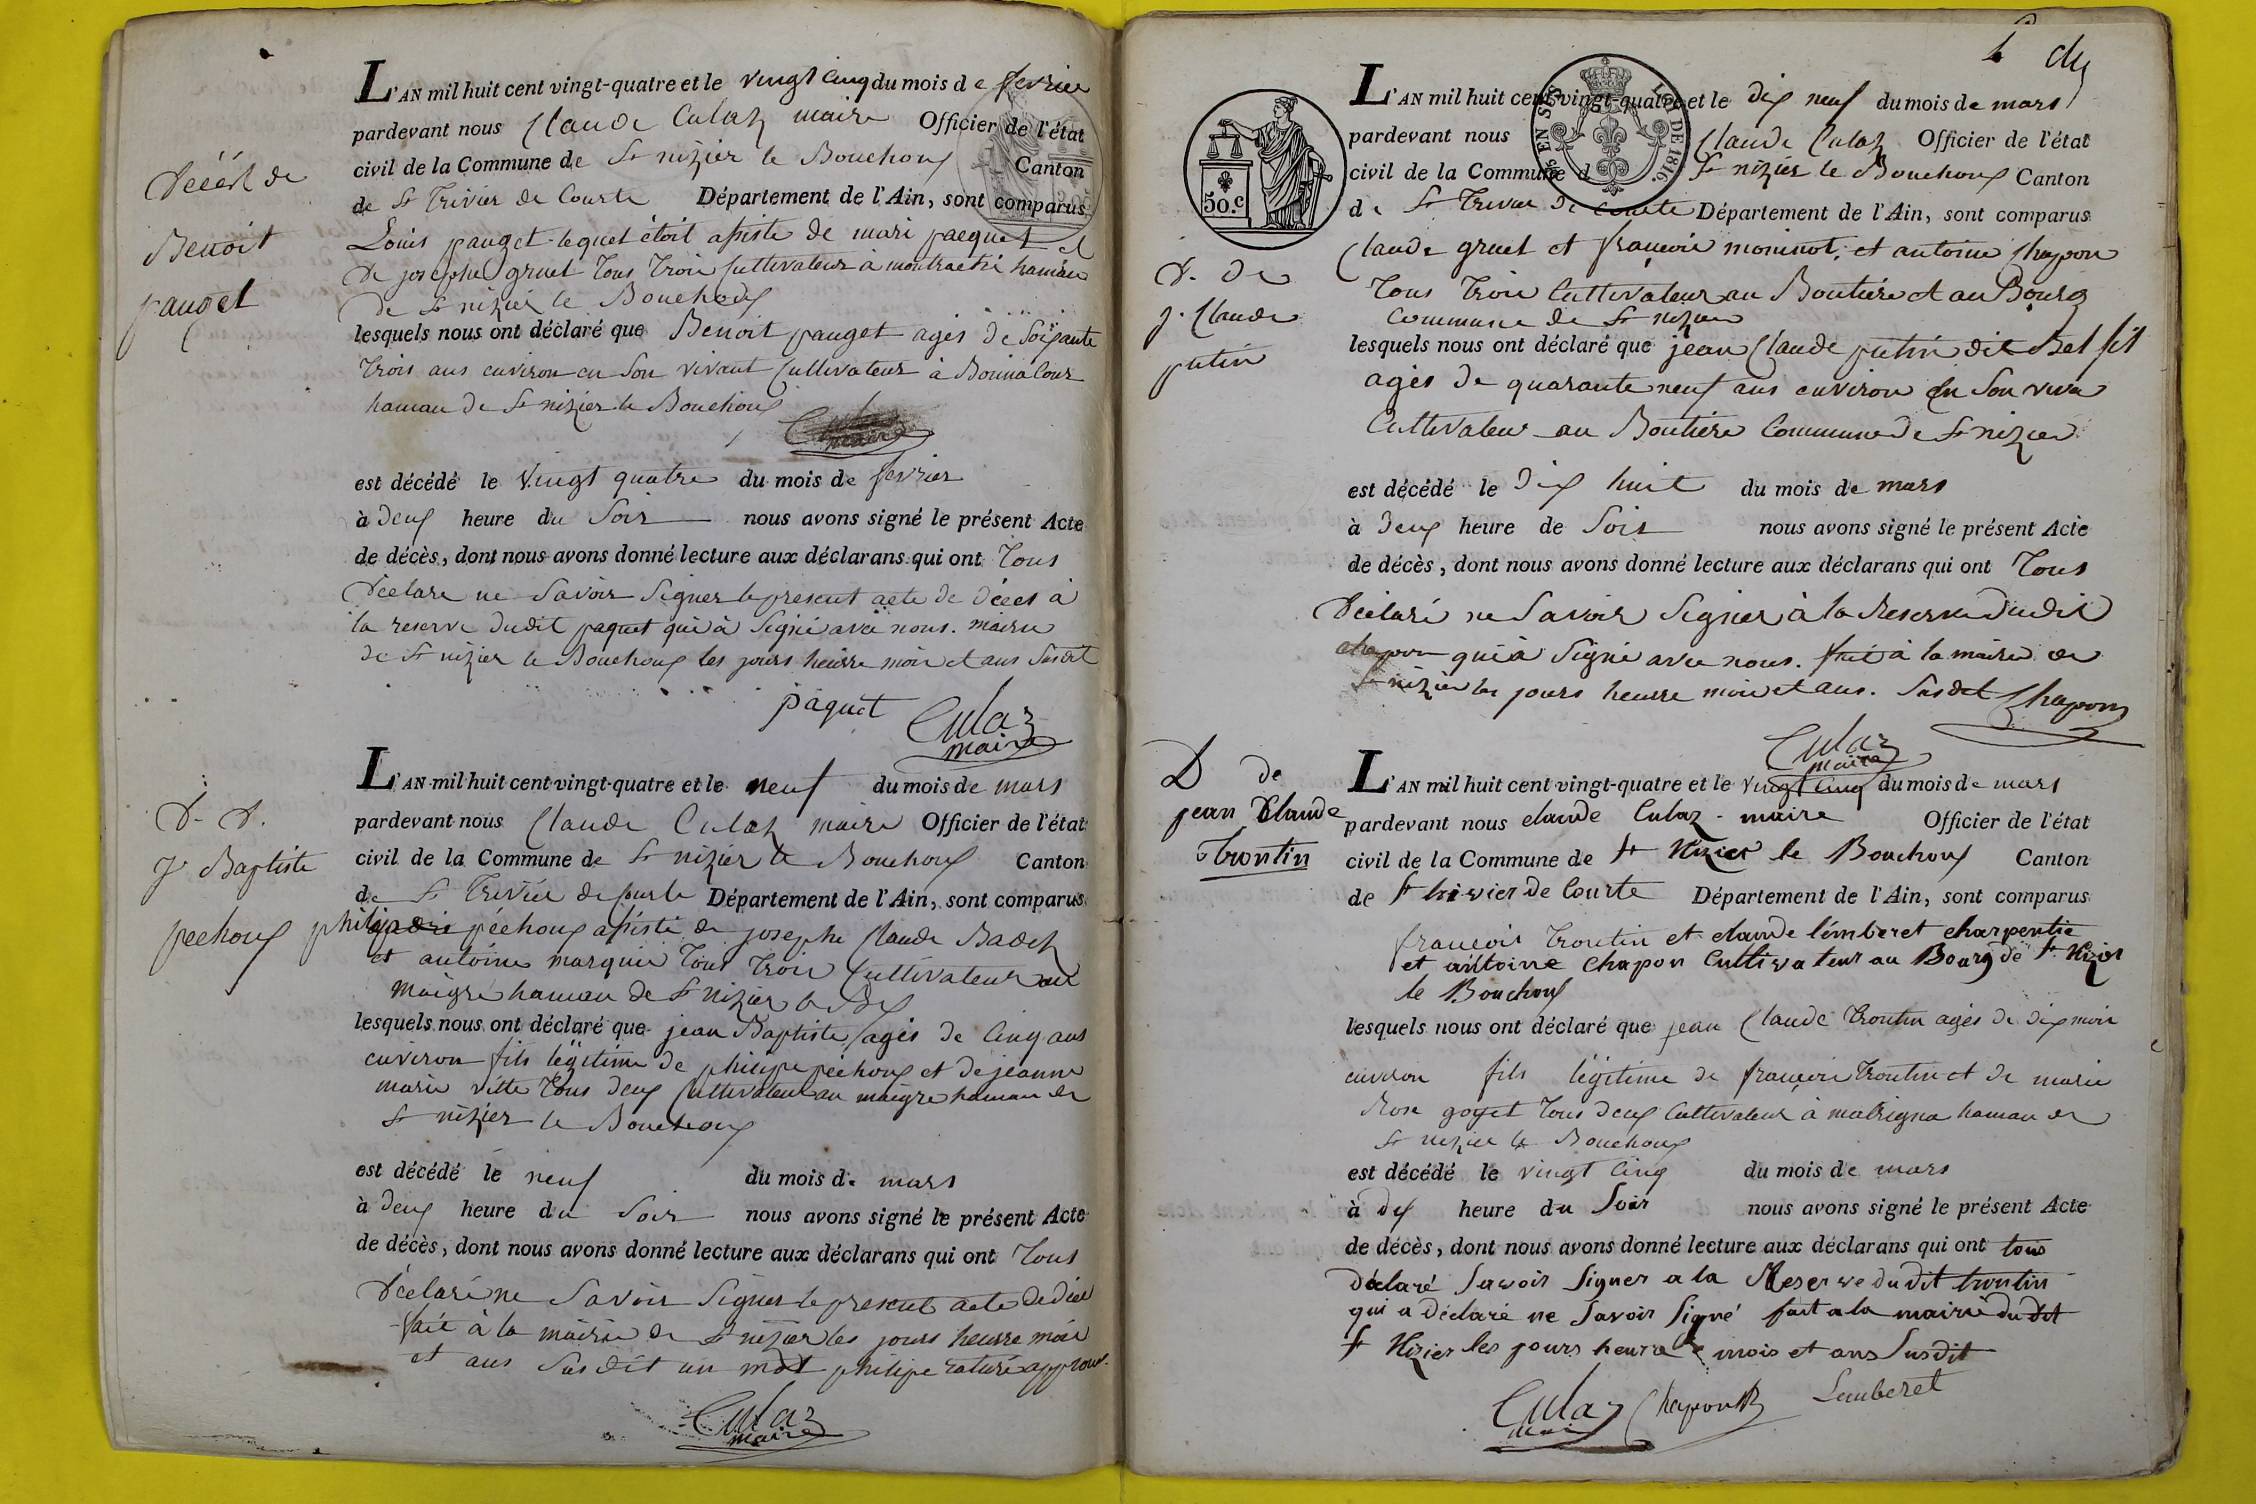 L'AN mil huit cent vingt-quatre et le vingt cinq du mois de fevrier
pardevant nous Claude Culaz maire Officier de l'état
civil de la Commune de St nizier le Bouchoux Canton
de St Trivier de Courte Département de l'Ain, sont comparus
Décés de
Benoit
pauget
Louis pauget lequel étoit assiste de mari pacquet et
de josephe gruet Tous Trois Cultivateur à hameau
de St nizier le Bouchoux
lesquels nous ont déclaré que Benoit pauget agés de Soixante
Trois ans environ en Son vivant Cultivateur à
hameau de St nizier le Bouchoux
Culaz
maire
est décédé le vingt quatre du mois de fevrier
à deux heure du Soir nous avons signé le présent Acte
de décès, dont nous avons donné lecture aux déclarans qui ont Tous
Déclare ne Savoir Signer le present acte de décés à
la reserve dudit paquet qui à Signé avec nous. mairie
de St nizier le Bouchoux les jours heurre mois et ans Susdit
paquet Culaz
maire
L'AN mil huit cent vingt-quatre et le neuf du mois de mars
pardevant nous Claude Culaz maire Officier de l'état
civil de la Commune de St nizier le Bouchoux Canton
de St Trivier de Courte Département de l'Ain, sont comparus
D. D.
J Baptiste
pechoux
philipe péchoux assisté de josephe Claude Badez
et antoine marquis Tous Trois Cultivateur au
maigre hameau de St nizier le Bx
lesquels nous ont déclaré que jean Baptiste agés de Cinq ans
environ fils légitime de philipe péchoux et de jeanne
marie vitte Tous deux Cultivateur au maigre hameau de
St nizier le Bouchoux
est décédé le neuf du mois de mars
à deux heure du Soir nous avons signé le présent Acte
de décès, dont nous avons donné lecture aux déclarans qui ont Tous
Déclaré ne Savoir Signer le present acte de
fait à la mairie de St nizier les jours heurre mois
et ans Susdit un mot philipe raturé approuvé
Culaz
maire
du
50.c
EN SUS
LOI DE 1816.
L'AN mil huit cent vingt-quatre et le dix neuf du mois de mars
pardevant nous Claude Culaz Officier de l'état
civil de la Commune d St nizier le Bouchoux Canton
de St Trivier de Courte Département de l'Ain, sont comparus
D. de
j. Claude
putin
Claude gruet et françois moninot, et antoine Chapon
Tous Trois Cultivateur au Boutière et au Bourg
Commune de St nizier
lesquels nous ont déclaré que jean Claude putin dit Bel fit
agés de quarante neuf ans environ en Son viva
Cultivateur au Boutière Commune de St nizier
est décédé le dix huit du mois de mars
à deux heure de Soir nous avons signé le présent Acte
de décès, dont nous avons donné lecture aux déclarans qui ont Tous
Déclaré ne Savoir Signer à la Reserve dudit
chapon qui à Signé avec nous. fait à la mairie de
St nizier les jours heurre mois et ans. Susdit Chapon
Culaz
maire
D de
jean Claude
trontin
L'AN mil huit cent vingt-quatre et le vingt cinq du mois de mars
pardevant nous claude Culaz - maire Officier de l'état
civil de la Commune de St Nizier le Bouchoux Canton
de St trivier de Courte Département de l'Ain, sont comparus
françois Trontin et claude lémberet charpentie
et antoine Chapon Cultivateur au Bourg de St Nizier
le Bouchoux
lesquels nous ont déclaré que jean Claude Trontin agés de dix mois
environ fils légitime de françois Trontin et de marie
Rose goyet Tous deux Cultivateur à hameau de
St nizier le Bouchoux
est décédé le vingt Cinq du mois de mars
à dix heure du Soir nous avons signé le présent Acte
de décès, dont nous avons donné lecture aux déclarans qui ont tous
Déclaré Savoir Signer a la Reserve dudit trontin
qui a Déclaré ne Savoir Signé fait a la mairie dudit
St Nizier les jours heurre mois et ans Susdit
Culaz Chapon Lamberet
maire